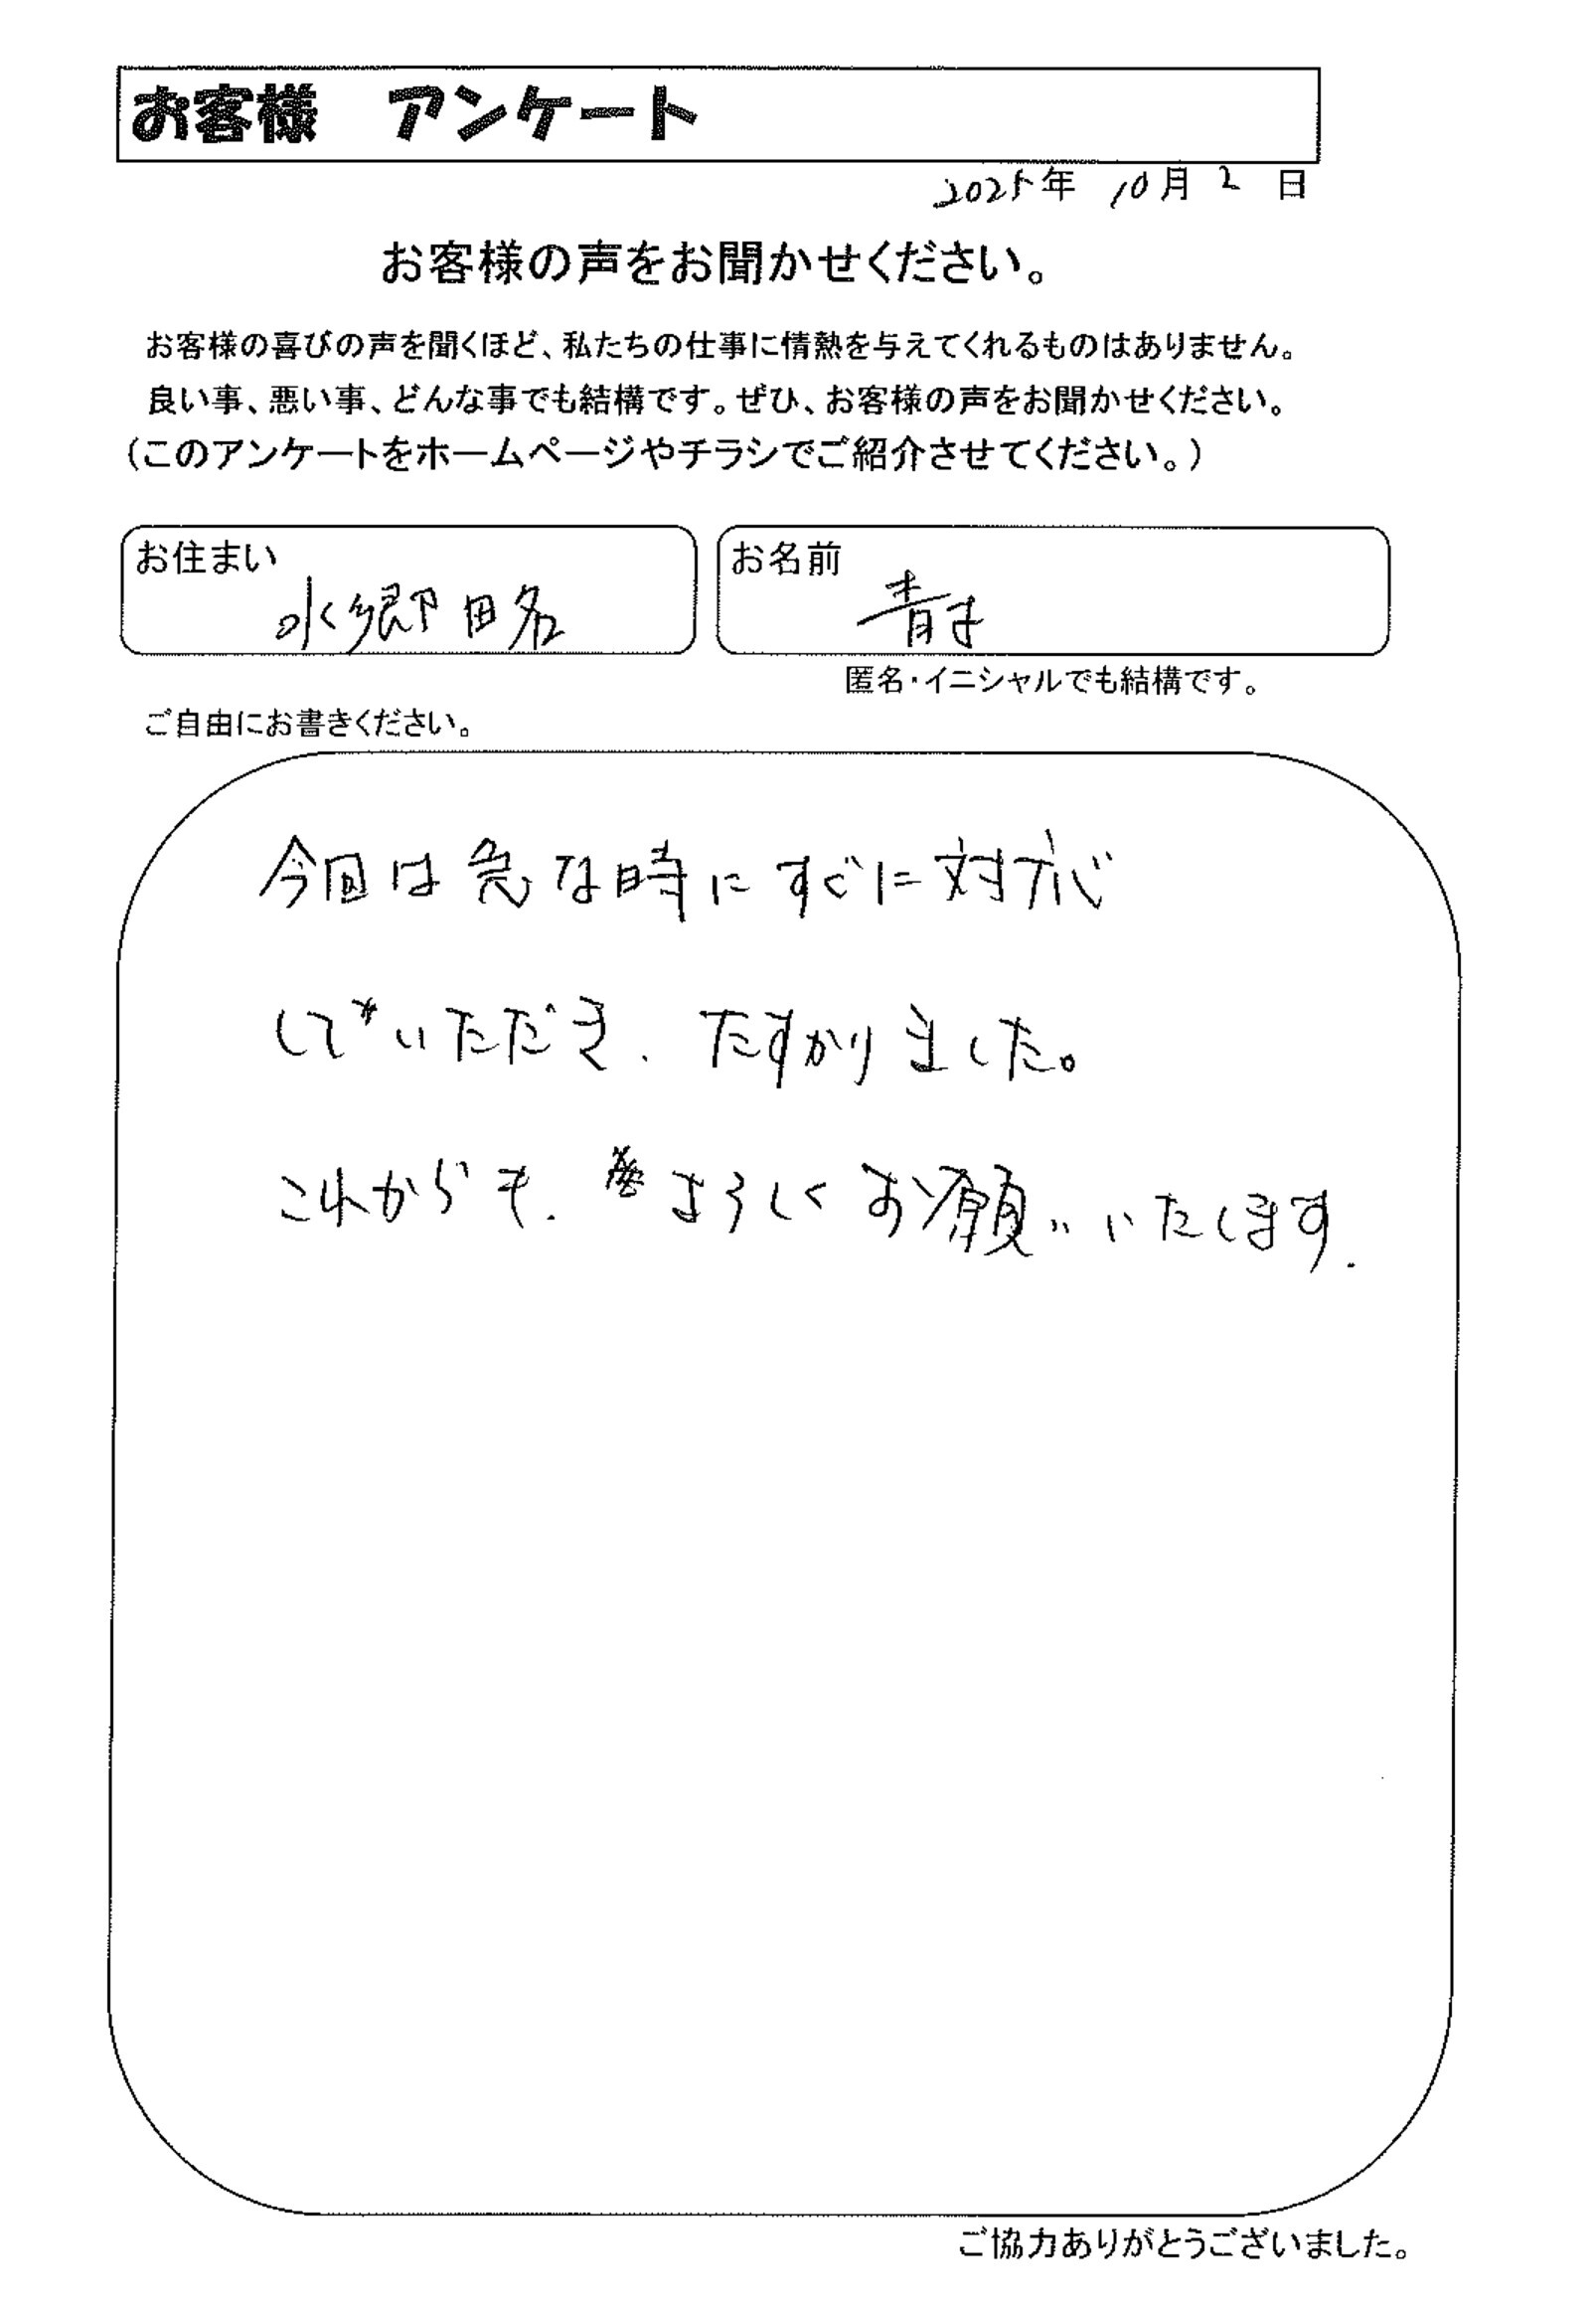 お客様 アンケート
2025年 10月 2 日
お客様の声をお聞かせください。
お客様の喜びの声を聞くほど、私たちの仕事に情熱を与えてくれるものはありません。
良い事、悪い事、どんな事でも結構です。ぜひ、お客様の声をお聞かせください。
(このアンケートをホームページやチラシでご紹介させてください。)
お住まい
水郷田名
お名前
匿名・イニシャルでも結構です。
ご自由にお書きください。
今回は急な時にすぐに対応
していただき、たすかりました。
これからも、よろしくお願いいたします。
ご協力ありがとうございました。